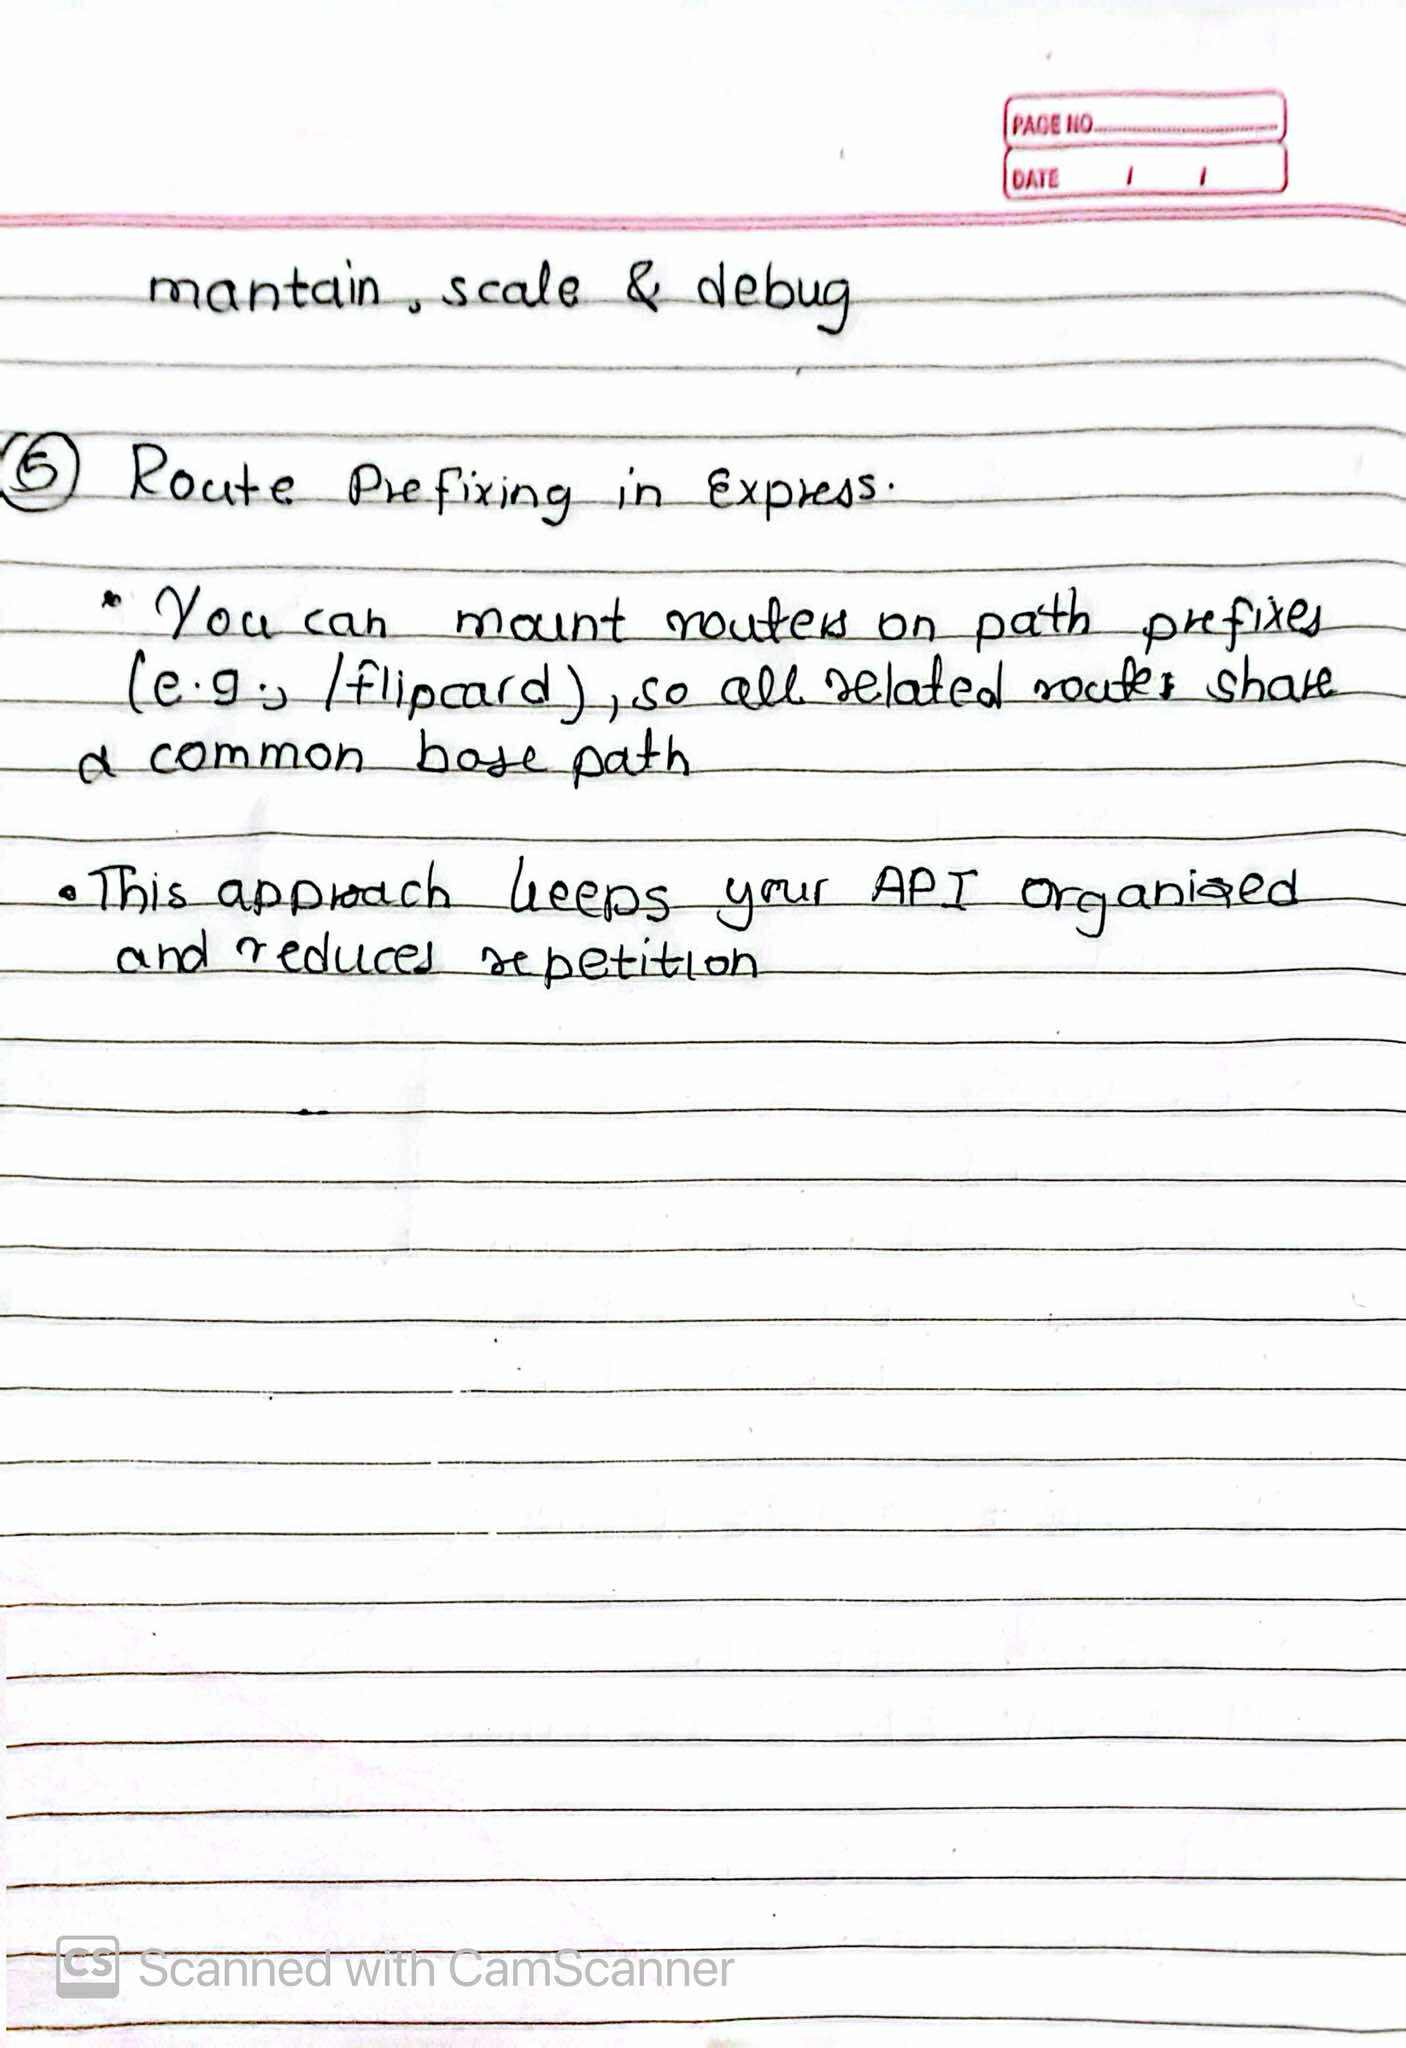 PAGE NO.
DATE / /
mantain, scale & debug
5 Route Prefixing in Express.
• You can mount routers on path prefixes
(e.g., /flipcard), so all related routes share
a common base path
• This approach keeps your API organized
and reduces repetition
CS Scanned with CamScanner